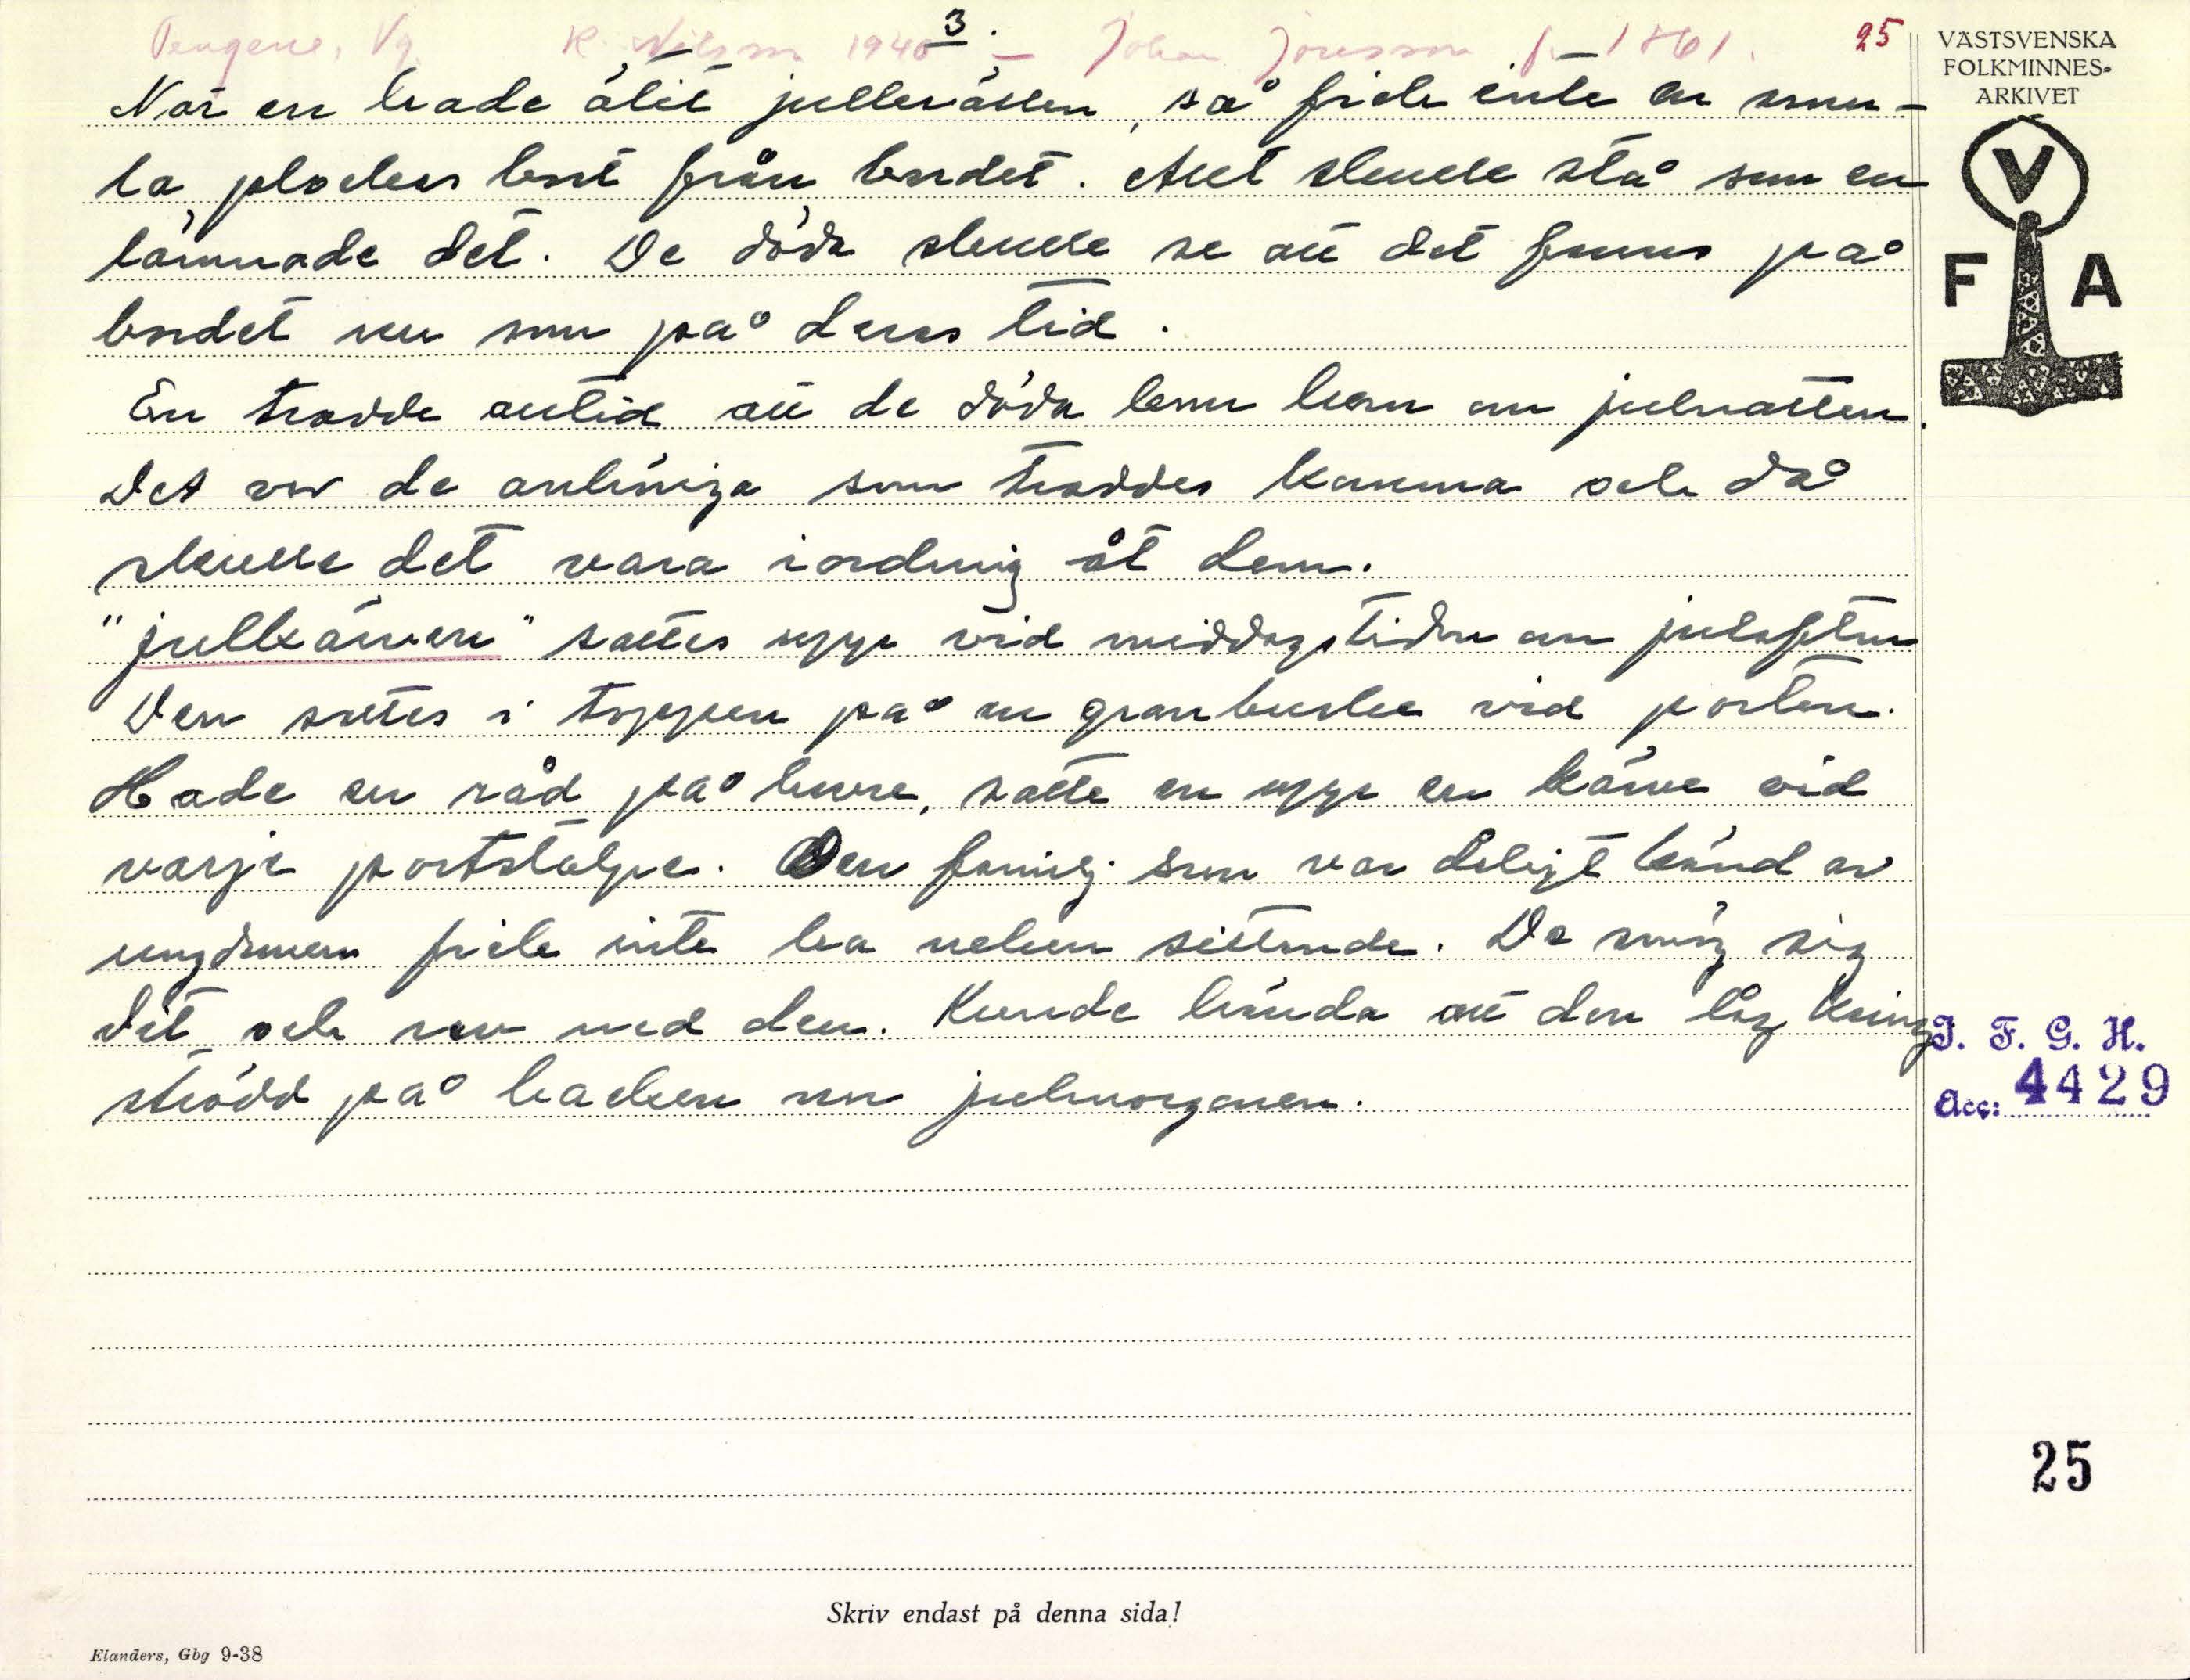 3.
Tengene, Vg K. Nilsson 1940 – Johan Jonsson f. 1861. 25
När en hade ätit julkvällen, så fick inte en smu-
la plockas bort från bordet. Allt skulle stå som en
lämnade det. De döda skulle se att det fanns på
bordet nu som på deras tid.
En trodde alltid att de döda kom hem om julnatten.
Det var de anhöriga som troddes komma och då
skulle det vara iordning åt dem.
"julkärven" sattes upp vid middagstiden om julafton
Den sattes i toppen på en granbuske vid porten.
Hade en råd på havre, satte en upp en kärve vid
varje portstolpe. Den familj som var dåligt känd av
ungdomen fick inte ha neken sittande. De smög sig
dit och rev ned den. Kunde hända att den låg kring
strödd på backen om julmorgonen.
VÄSTSVENSKA
FOLKMINNES-
ARKIVET
V
F A
I. F. G. H.
Acc: 4429
25
Skriv endast på denna sida!
Elanders, Gbg 9-38